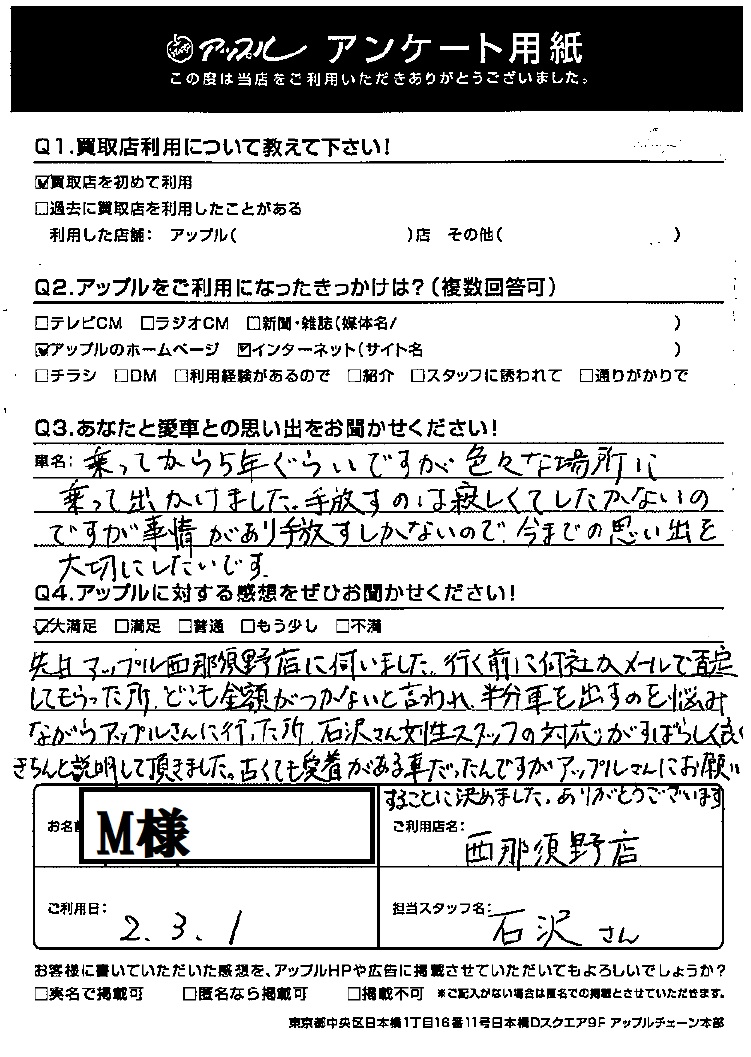 アップル アンケート用紙
この度は当店をご利用いただきありがとうございました。
Q1.買取店利用について教えて下さい!
☑買取店を初めて利用
□過去に買取店を利用したことがある
利用した店舗: アップル( )店 その他( )
Q2.アップルをご利用になったきっかけは?(複数回答可)
□テレビCM □ラジオCM □新聞・雑誌(媒体名/ )
☑アップルのホームページ ☑インターネット(サイト名 )
□チラシ □DM □利用経験があるので □紹介 □スタッフに誘われて □通りがかりで
Q3.あなたと愛車との思い出をお聞かせください!
車名: 乗ってから5年ぐらいですが色々な場所に
乗って出かけました。手放すのは寂しくてしたかないの
ですが事情があり手放すしかないので、今までの思い出を
大切にしたいです。
Q4.アップルに対する感想をぜひお聞かせください!
☑大満足 □満足 □普通 □もう少し □不満
先日アップル西那須野店に伺いました。行く前に何社かメールで査定
してもらった所、どこも金額がつかないと言われ、半分車を出すのを悩み
ながらアップルさんに行った所、石沢さん女性スタッフの対応がすばらしく良く
きちんと説明して頂きました。古くても愛着がある車だったんですがアップルさんにお願い
することに決めました。ありがとうございます
お名前
M様
ご利用店名:
西那須野店
ご利用日:
2.3.1
担当スタッフ名:
石沢さん
お客様に書いていただいた感想を、アップルHPや広告に掲載させていただいてもよろしいでしょうか?
□実名で掲載可 □匿名なら掲載可 □掲載不可 *ご記入がない場合は匿名での掲載とさせていただきます。
東京都中央区日本橋1丁目16番11号日本橋Dスクエア9F アップルチェーン本部